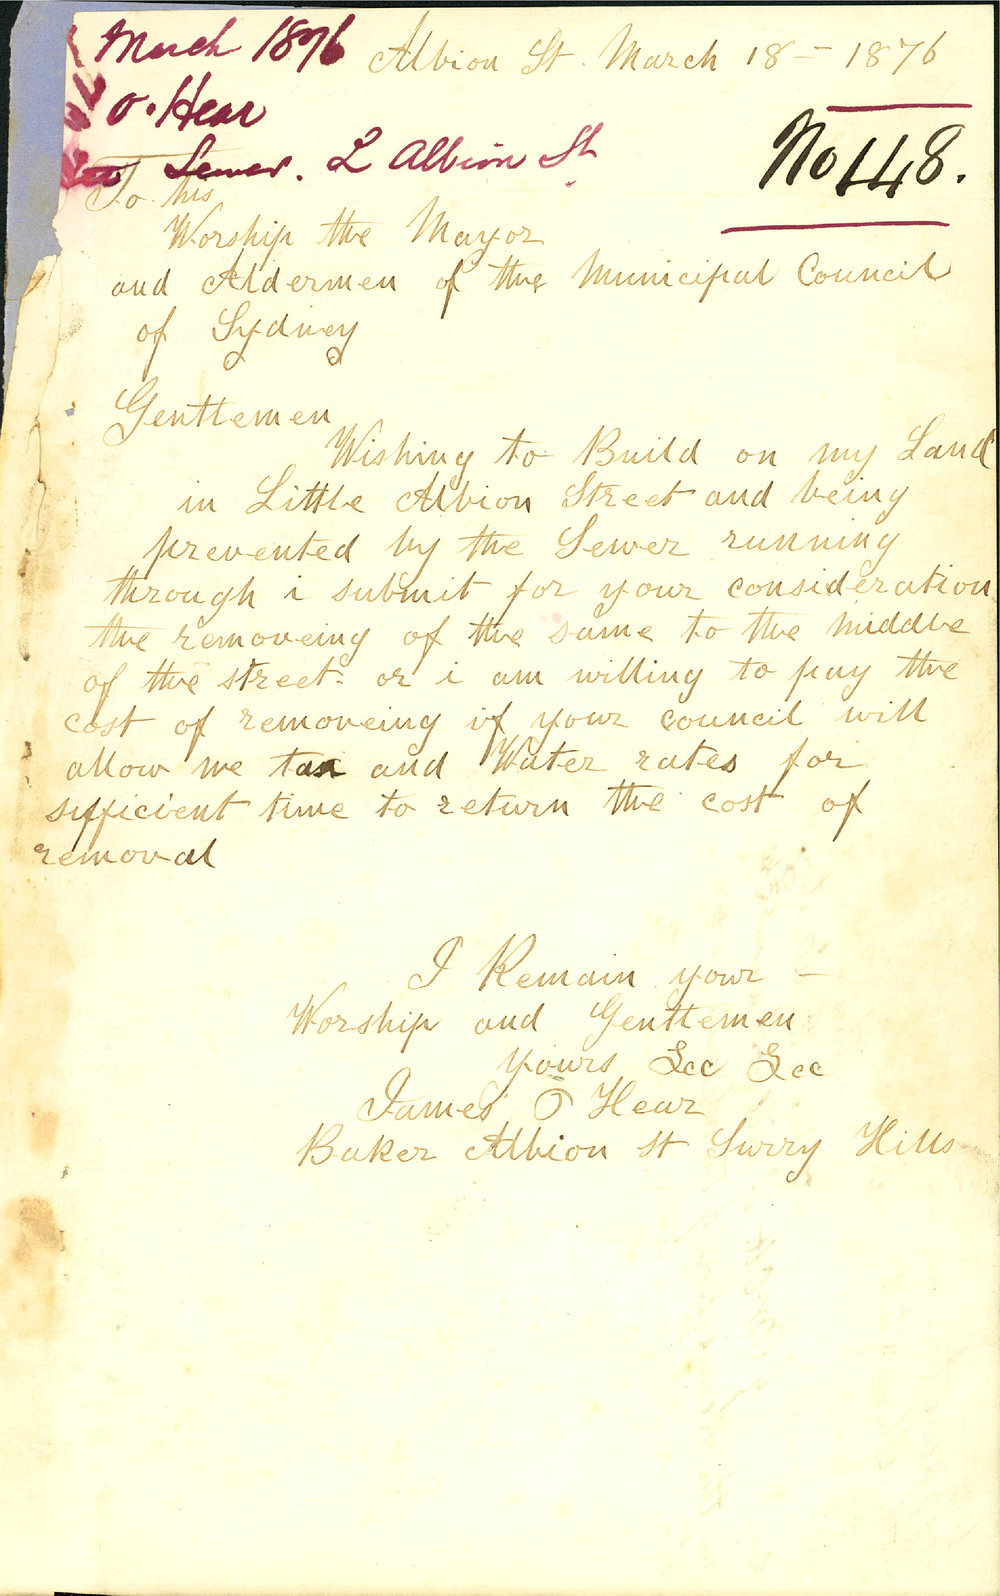 March 1876
Albion St. March 18 - 1876
O. Hear
Sewer. L Albion St
No 148.
To his
Worship the Mayor
and Aldermen of the Municipal Council
of Sydney
Gentlemen
Wishing to Build on my Land
in Little Albion Street and being
prevented by the Sewer running
through i submit for your consideration
the removeing of the same to the middle
of the street. or i am willing to pay the
cost of removeing if your council will
allow me tax and Water rates for
sifficient time to return the cost of
removal
I Remain your -
Worship and Gentlemen
yours &cc &cc
James O Hear
Baker Albion St Surry Hills